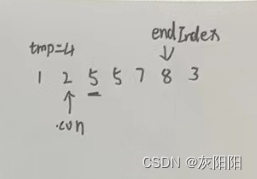 endIndex
tmp=4
1 2 5 5 7 8 3
.cun
CSDN @灰阳阳